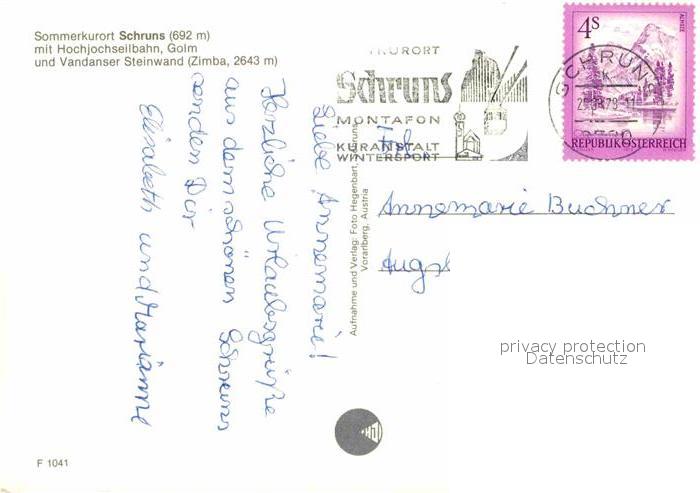 Sommerkurort Schruns (692 m)
mit Hochjochseilbahn, Golm
und Vandanser Steinwand (Zimba, 2643 m)
KURORT
Schruns
MONTAFON
KURANSTALT
WINTERSPORT
4S
ALMSEE
REPUBLIK ÖSTERREICH
SCHRUNS
Liebe Annemarie!
Herzliche Urlaubsgrüße
aus dem schönen Schruns
senden Dir
Elisabeth und Marianne
Aufnahme und Verlag: Foto Hegenbart, Schruns
Vorarlberg, Austria
Annemarie Buchner
Augs
privacy protection
Datenschutz
F 1041